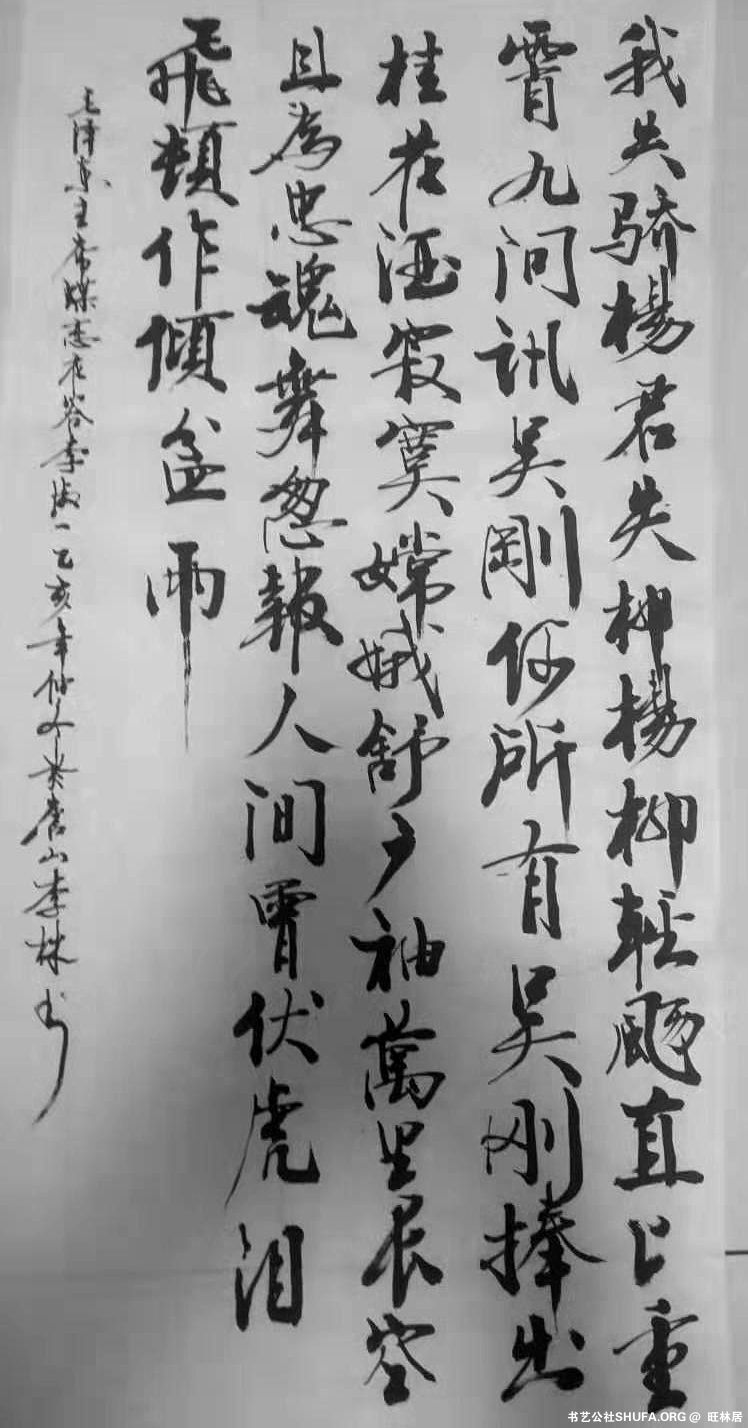 我失骄楊君失柳楊柳輕颺直上重
霄九问訊吴剛何所有吴刚捧出
桂花酒寂寞嫦娥舒广袖萬里長空
且為忠魂舞忽報人间曾伏虎泪
飛頓作傾盆雨
毛泽东主席蝶恋花答李淑一乙亥年仲冬 唐山李林书
书艺公社SHUFA.ORG @ 旺林居